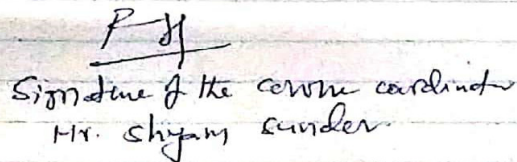 Signature of the course coordinator
Mr. Shyam Sunder